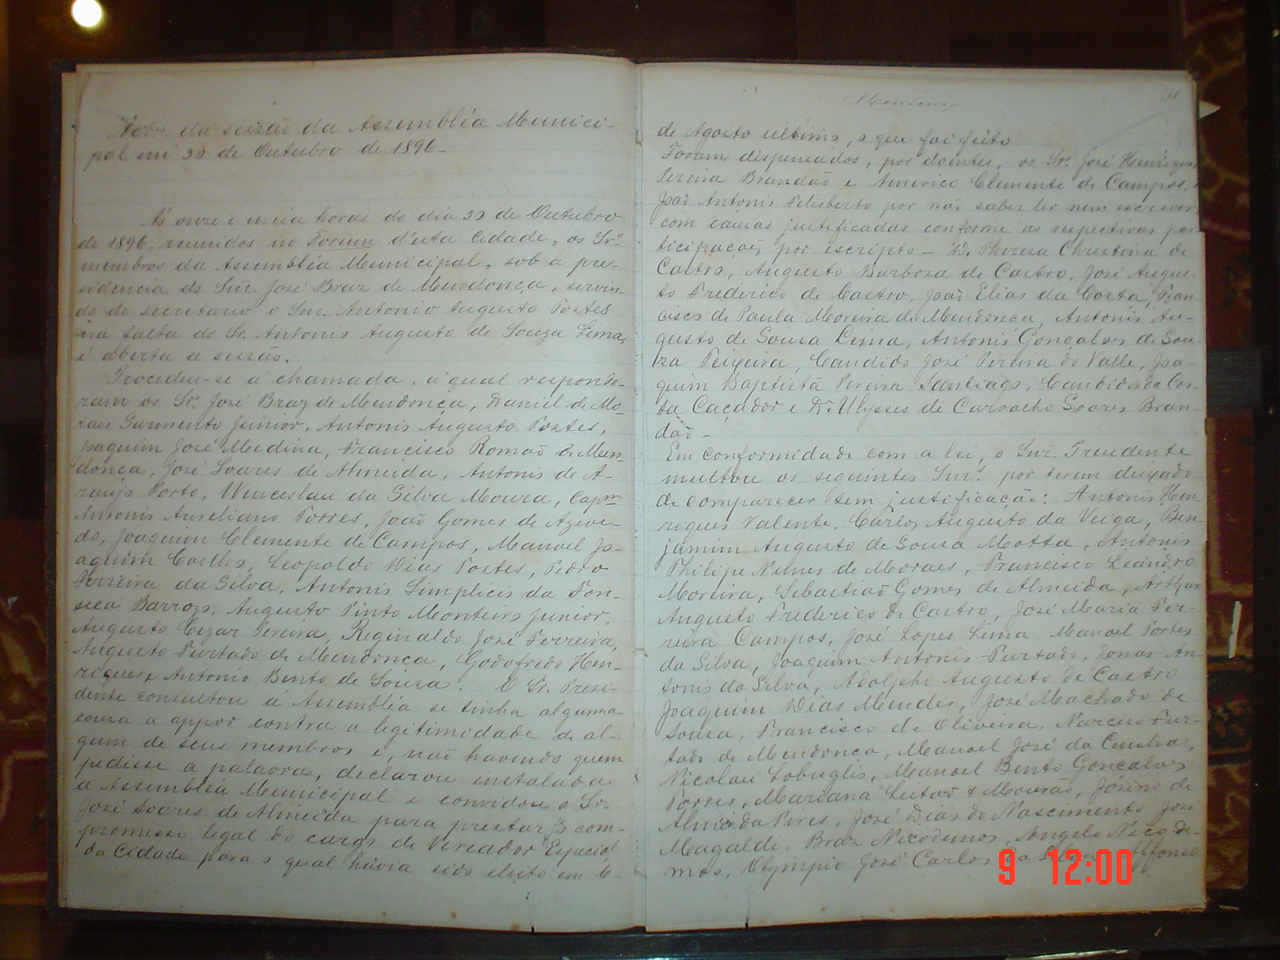 Acta da sessão da Assembléa Munici-
pal em 20 de Outubro de 1896-
Ás onze e meia horas do dia 20 de Outubro
de 1896, reunidos no Forum d'esta Cidade, os Srs
membros da Assembléa Municipal, sob a pre-
sidencia do Snr José Braz de Mendonça, servin-
do de secretario o Snr. Antonio Augusto Fortes
na falta do Sr. Antonio Augusto de Souza Lima,
é aberta a sessão.
Procedeu-se á chamada, á qual responde-
ram os Srs José Braz de Mendonça, Daniel de Mo-
raes Sarmento Junior, Antonio Augusto Fortes,
Joaquim José Medina, Francisco Romão de Men-
donça, José Soares de Almeida, Antonio de A-
raujo Porto, Wenceslau da Silva Moura, Capm
Antonio Aureliano Torres, João Gomes de Azeve-
do, Joaquim Clemente de Campos, Manoel Jo-
aquim Coelho, Leopoldo Dias Fortes, Pedro
Ferreira da Silva, Antonio Simplicio da Fon-
seca Barros, Augusto Pinto Monteiro Junior,
Augusto Cezar Pereira, Reginaldo José Ferreira,
Augusto Furtado de Mendonça, Godofredo Hen-
riques, Antonio Bento de Sousa. O Sr. Presi-
dente consultou á Assembléa se tinha alguma
cousa a oppor contra a legitimidade de al-
gum de seus membros e, não havendo quem
pedisse a palavra, declarou installada
a Assembléa Municipal e convidou o Sr.
José Soares de Almeida para prestar o com-
promisso legal do cargo de Vereador Especial
da Cidade para o qual havia sido eleito em 16
Mendonça
de Agosto ultimo, o que foi feito.
Foram dispensados, por doentes, os Srs José Henriques
Pereira Brandão e Americo Clemente de Campos,
João Antonio Felisberto por não saber ler nem escrever,
com causas justificadas conforme as respectivas par-
ticipações por escripto - D. Thereza Christina de
Castro, Augusto Barboza de Castro, José Augus-
to Frederico de Castro, João Elias da Costa, Fran-
cisco de Paula Moreira de Mendonça, Antonio Au-
gusto de Sousa Lima, Antonio Gonçalves de Sou-
za Teixeira, Candido José Pereira do Valle, Joa-
quim Baptista Pereira Santiago, Candido da Cos-
ta Caçador e Dr. Ulysses de Carvalho Soares Bran-
dão -
Em conformidade com a lei, o Snr. Presidente
multou os seguintes Snrs por terem deixado
de comparecer sem justificação: Antonio Hen-
riques Valente, Carlos Augusto da Veiga, Ben-
jamim Augusto de Sousa Motta, Antonio
Philipe Nunes de Moraes, Francisco Leandro
Moreira, Sebastião Gomes de Almeida, Arthur
Augusto Frederico de Castro, José Maria Fer-
reira Campos, José Lopes Lima, Manoel Fortes
da Silva, Joaquim Antonio Furtado, Jonas An-
tonio da Silva, Adolpho Augusto de Castro
Joaquim Dias Mendes, José Machado de
Sousa, Francisco de Oliveira, Narciso Fur-
tado de Mendonça, Manoel José da Cunha,
Nicolau Lobuglis, Manoel Bento Goncalves
Torres, Mariana Leitão & Mourão, Josino de
Almeida Pires, José Dias do Nascimento, José
Magaldi, Braz Nicodemos, Angelo Nico de-
mos, Olympio José Carlos da Affonso
9 12:00